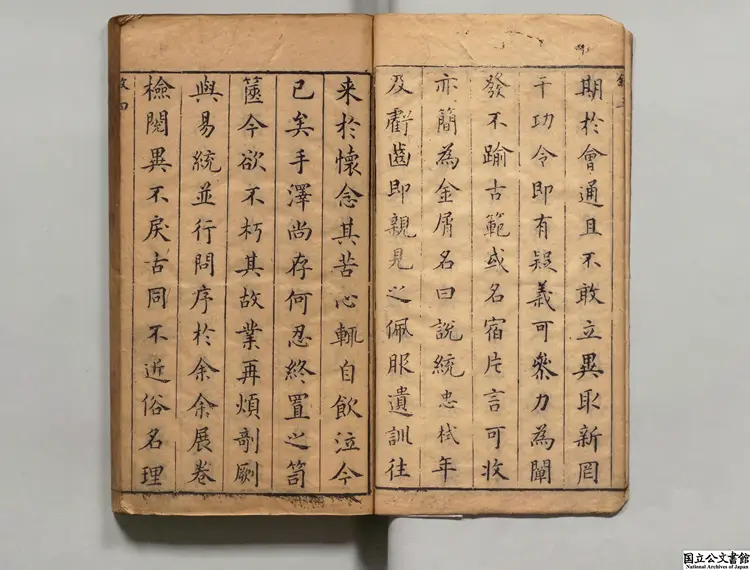 期於會通且不敢立異取新罔
干功令即有疑義可參力為闡
發不踰古範或名宿片言可收
亦簡為金屑名曰說統忠栻年
及齒即親見之佩服遺訓往
来於懷念其苦心輒自飲泣今
已矣手澤尚存何忍終置之笥
篋今欲不朽其故業再煩剞劂
與易統並行問序於余余展卷
檢閱異不戾古同不近俗名理
四
国立公文書館
National Archives of Japan